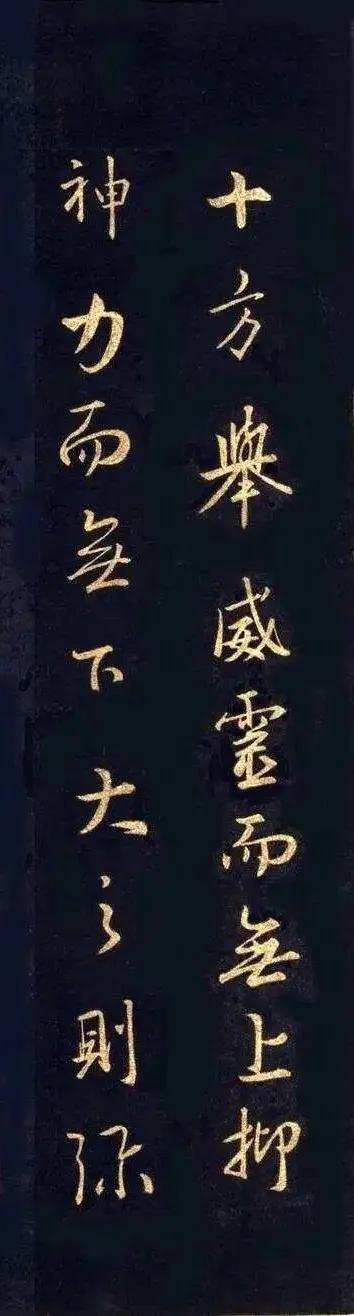 十方舉威靈而無上抑
神力而無下大之則弥